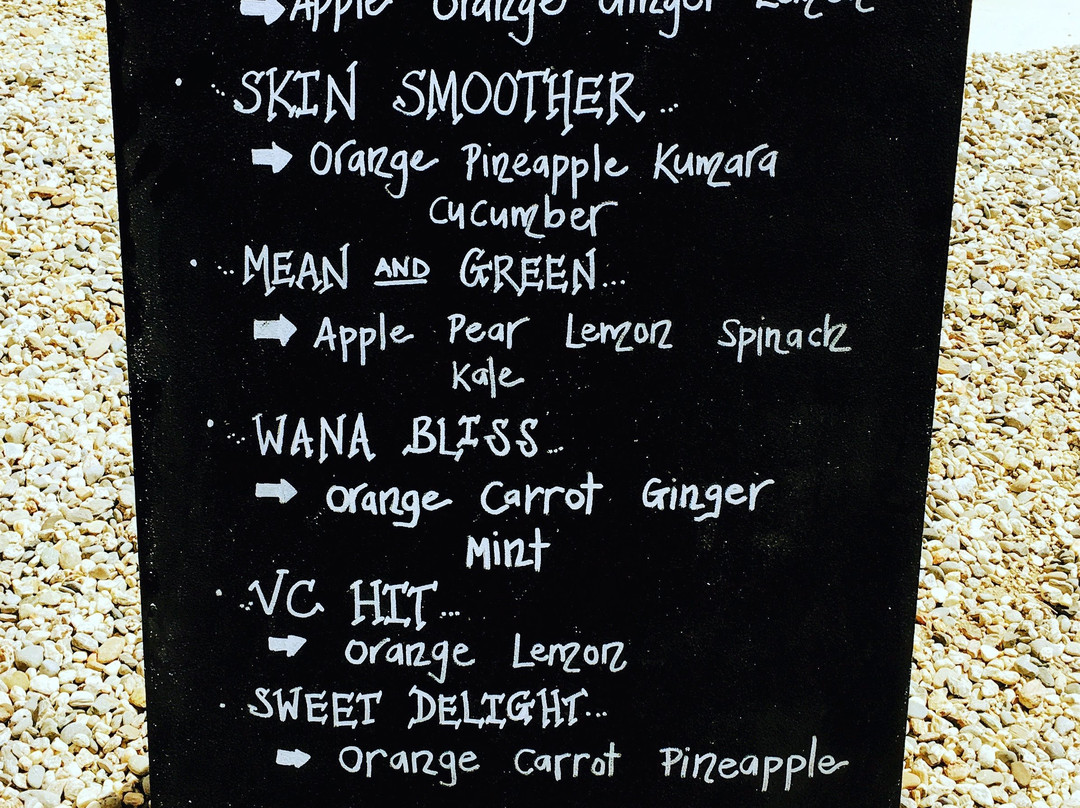 Apple Orange Ginger Lemon
SKIN SMOOTHER...
Orange Pineapple Kumara
Cucumber
MEAN AND GREEN...
Apple Pear Lemon Spinach
Kale
WANA BLISS...
Orange Carrot Ginger
Mint
VC HIT...
Orange Lemon
SWEET DELIGHT...
Orange Carrot Pineapple